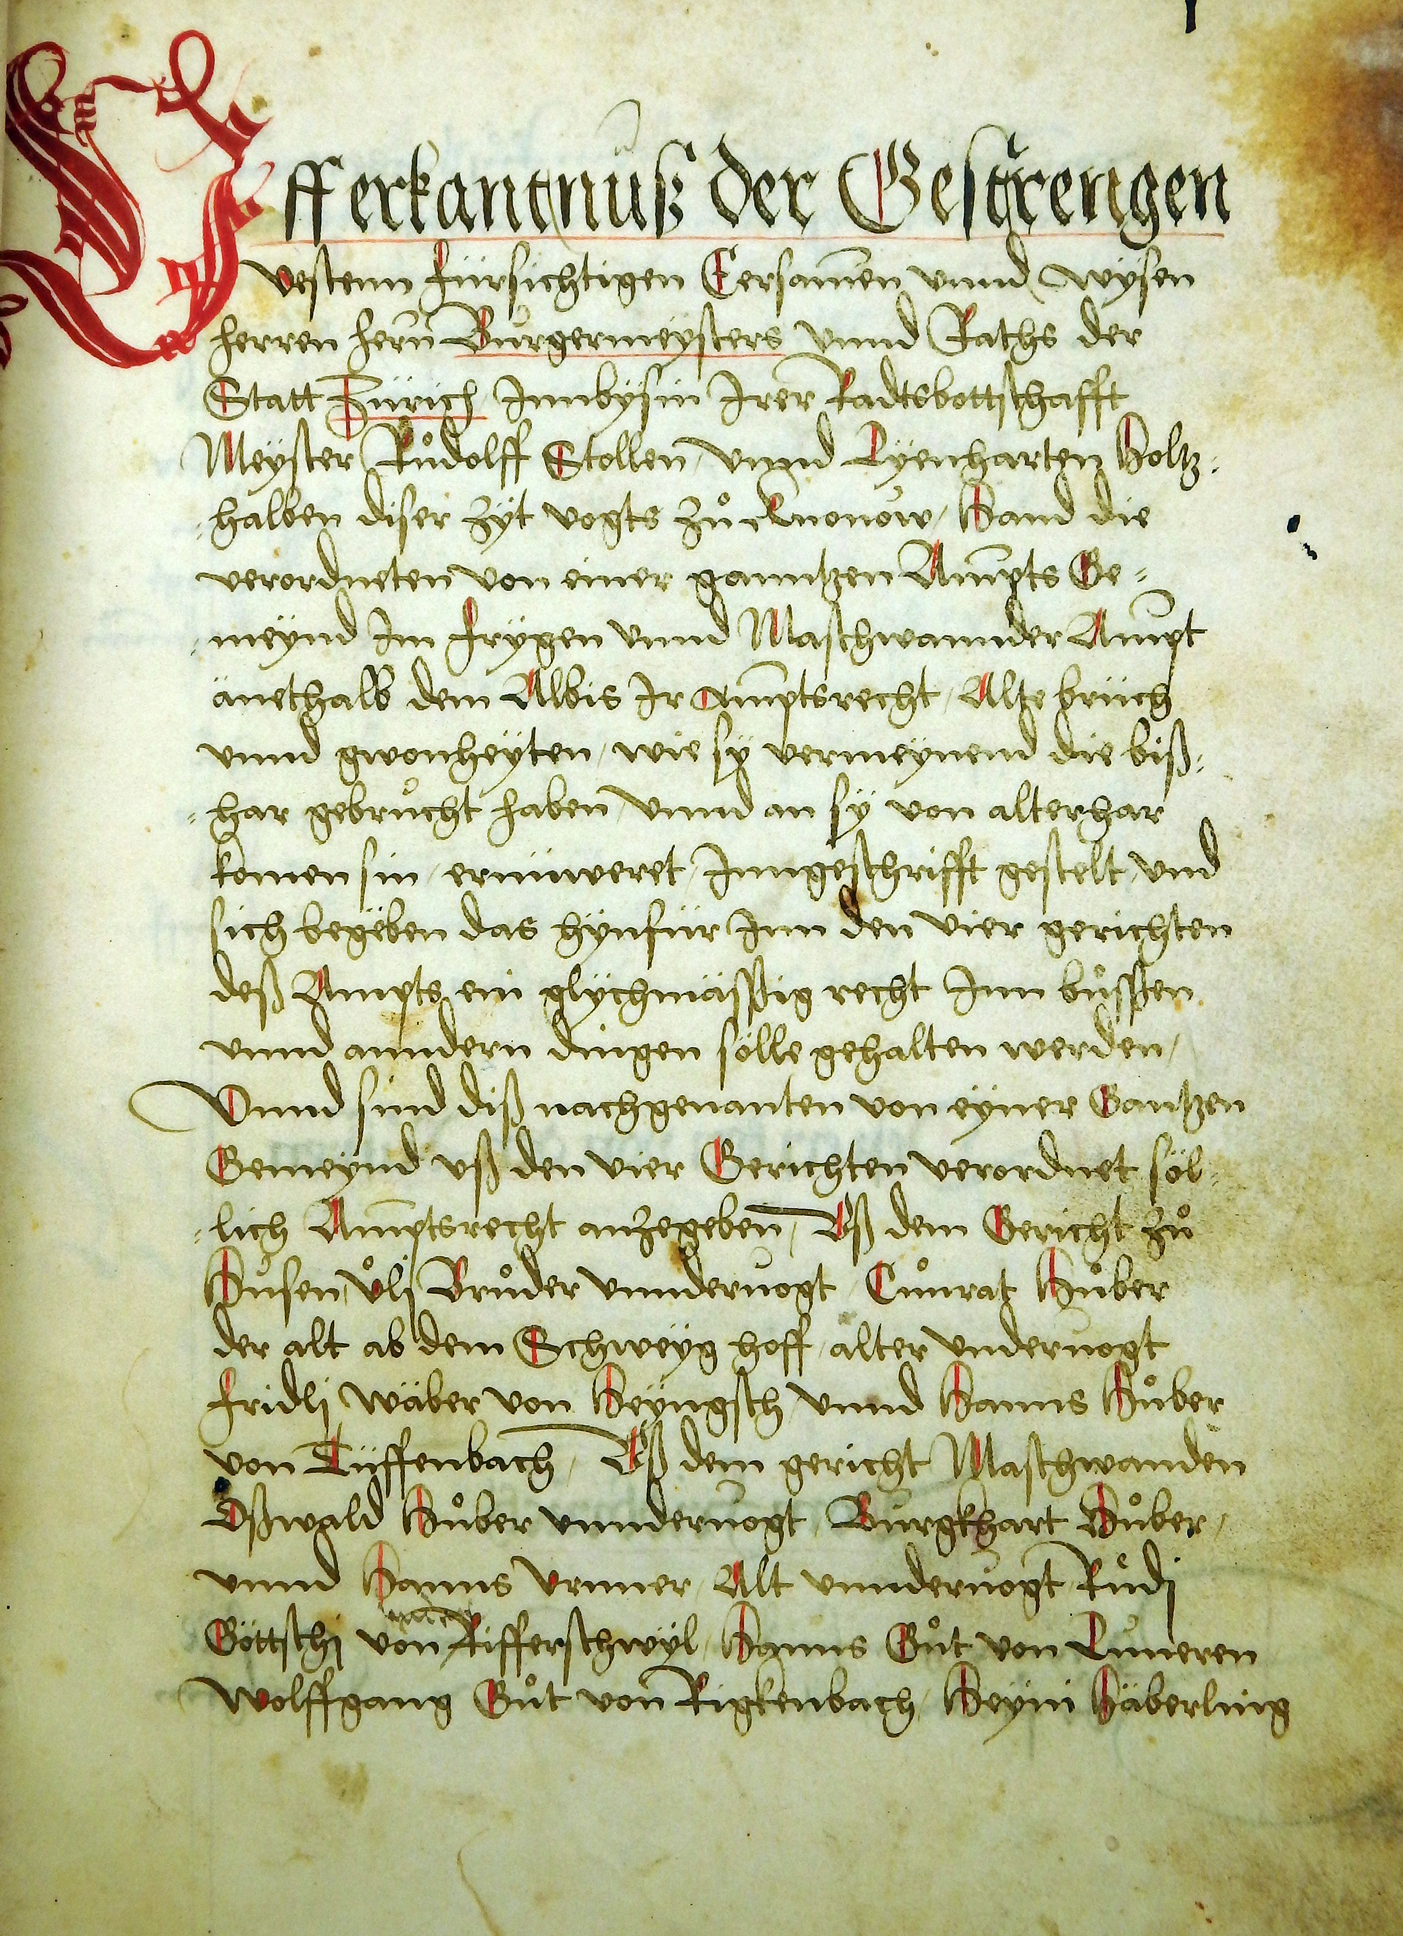 Uff erkantnuß der Gestrengen
vestenn fürsichtigen Eersamen unnd wysen
herren hern Burgermeysters unnd Raths der
Statt Zürich Innbysin Irer Radtsbottschafft
Meyster Růdolff Stollen unnd Lÿenharten Holtz-
-halben diser zÿt vogts zů Knonow, Hand die
verordneten von einer ganntzen Ampts Ge-
-meÿnd Im frÿgen unnd Maschwannder Ampt
änethalb dem Albis Ir amptsrecht, Alte brüch
unnd gwonheÿten, wie sÿ vermeÿnend die biß-
-har gebrucht haben unnd an sÿ von alterhar
komen sin, ernüweret, Inngeschrifft gestelt, und
sich begëben das hÿnfür Inn den vier gerichten
deß Ampts ein glÿchmässig recht Inn bůssen
unnd anndern dingen sölle gehalten werden,
Unnd sind diß nachgenanten von eÿner Gantzen
Gemeÿnd uß den vier Gerichten verordnet söl-
-lich Amptsrecht anzegeben, Uß dem Gericht zů
Husen, Ůli Brůder unndervogt, Cůnrat Hůber
der alt ab dem Schweÿg hoff, alter undervogt
fridli wäber von Heÿngsch unnd Hanns Hůber
von Tüffenbach, Uß dem gericht Maschwanden
Oßwald Hůber unndervogt, Burgkhart Hůber,
unnd Hanns Urmer, Alt unndervogt Růdi
Göttschi von Rifferschwÿl, Hanns Gůt von Luneren
Wolffgang Gůt von Rigkenbach, Heÿni Häberling